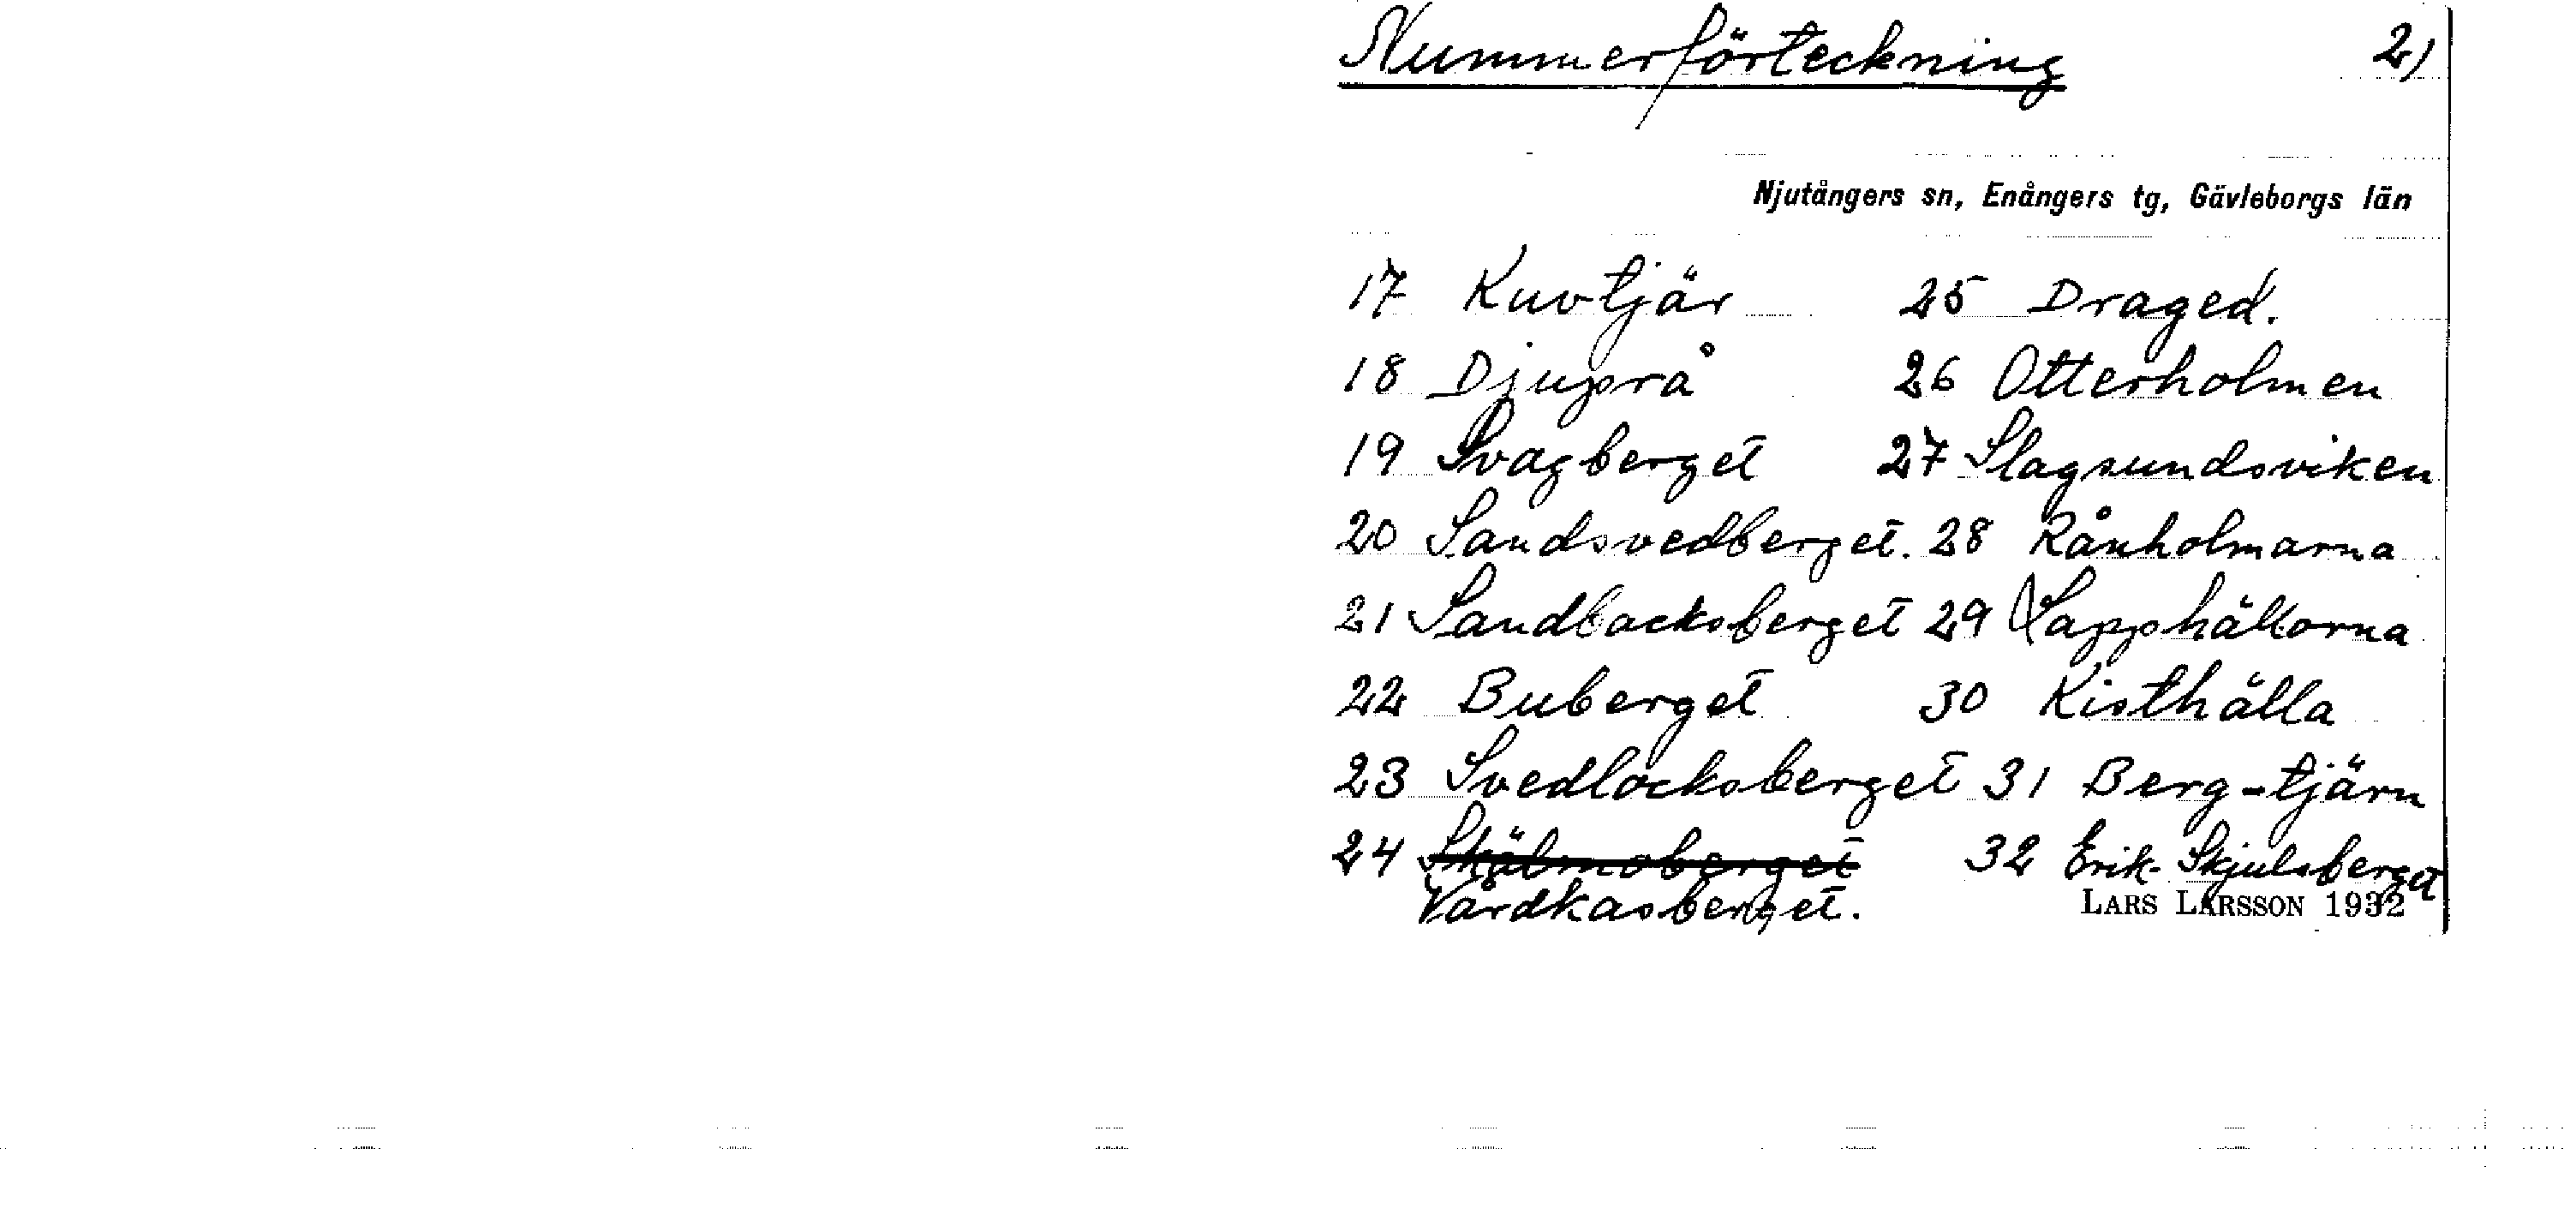 Nummerförteckning 2)
Njutångers sn, Enångers tg, Gävleborgs län
17 Kuvtjär 25 Draged.
18 Djuprå 26 Otterholmen
19 Svagberget 27 Slagsundsviken
20 Sandsvedberget. 28 Rånholmarna
21 Sandbacksberget 29 Lapphällorna
22 Buberget 30 Kisthälla
23 Svedlocksberget 31 Berg-tjärn
24 Skälmoberget 32 Erik-Skjulsberget
Vårdkasberget.
LARS LARSSON 1932